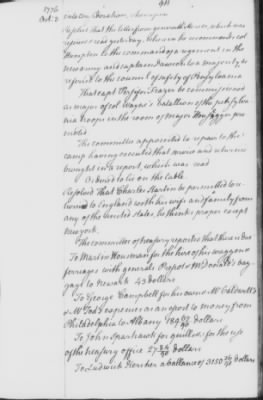 1776
Oct. 2
Resolved that the letter from general Mercer, which was
received yesterday, wherein he recommends col
Hampton to the command of a regiment in the
new army and captain Dawson to a majority be
referred to the council of safety of Pensylvania
That capt Persifer Frazer be commissioned
as major of col Wayne's battalion of the pensylva
nia troops in the room of major Hausegger pro
moted.
The committee appointed to repair to the
camp having executed that service and returned
brought in a report, which was read
Ordered to lie on the table.
Resolved That Charles Startin be permitted to re
turn to England with his wife and family from
any of the United States he thinks proper except
new york.
The committee of treasury reported that there is due
To Martin Housman for the hire of his waggon
for riages with generals Prescot & McDonald's bag
gage to Newark 43 dollars
To George Campbell for his own & Mr Caldwell's
& Mr Tod's expences as an escort to money from
Philadelphia to Albany 184 dollars
To John Sparhawk for quills &c for the use
of the treasury office 27 dollars
To Ludwick Karcher a ballance of 3150 dollars